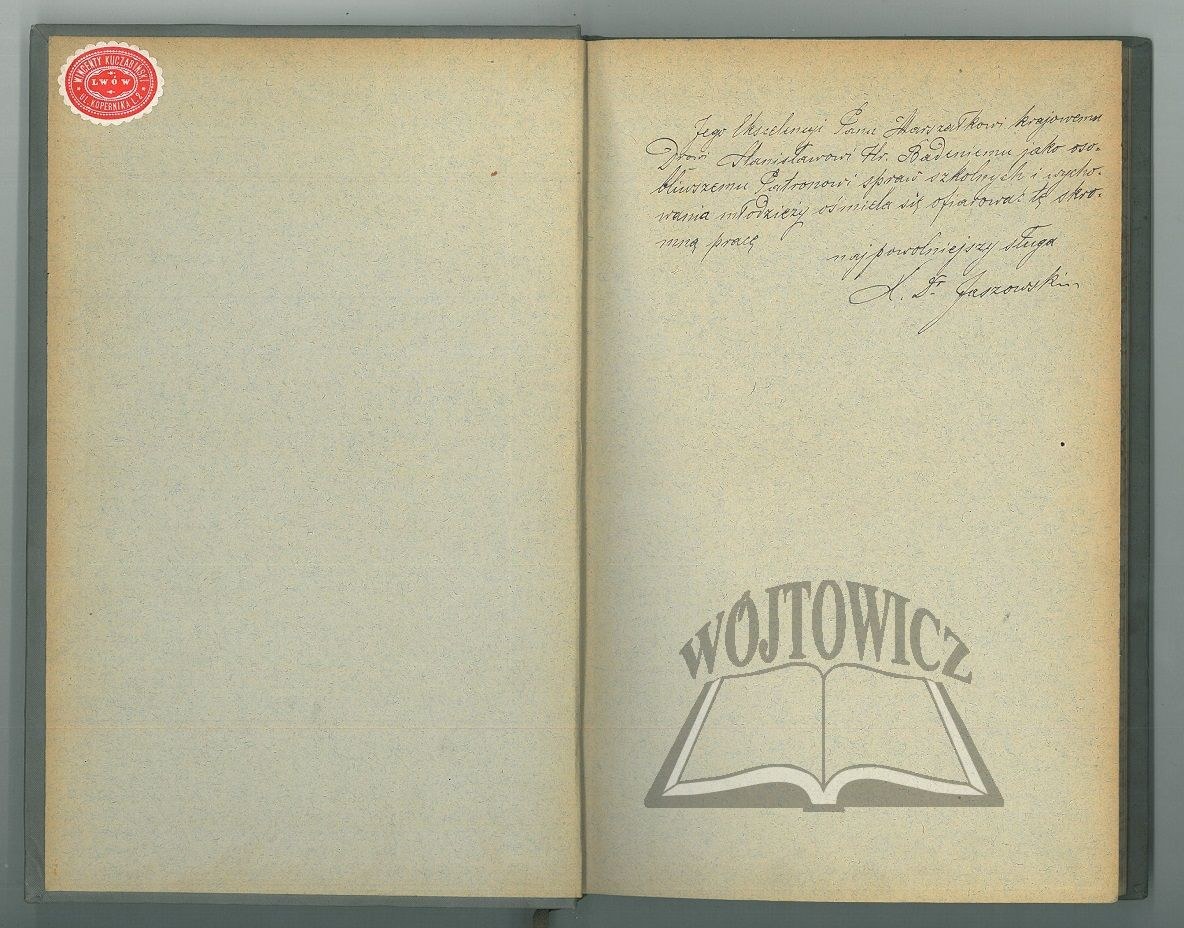 WINCENTY KUCZABIŃSKI
LWÓW
UL. KOPERNIKA L. 2
Jego Ekscelencyi Panu Marszałkowi krajowemu
Drowi Stanisławowi Hr. Badeniemu jako oso-
bliwszemu Patronowi spraw szkolnych i wycho-
wania młodzieży ośmiela się ofiarować tę skro-
mną pracę
najpowolniejszy sługa
X. Dr Jaszowski
WÓJTOWICZ